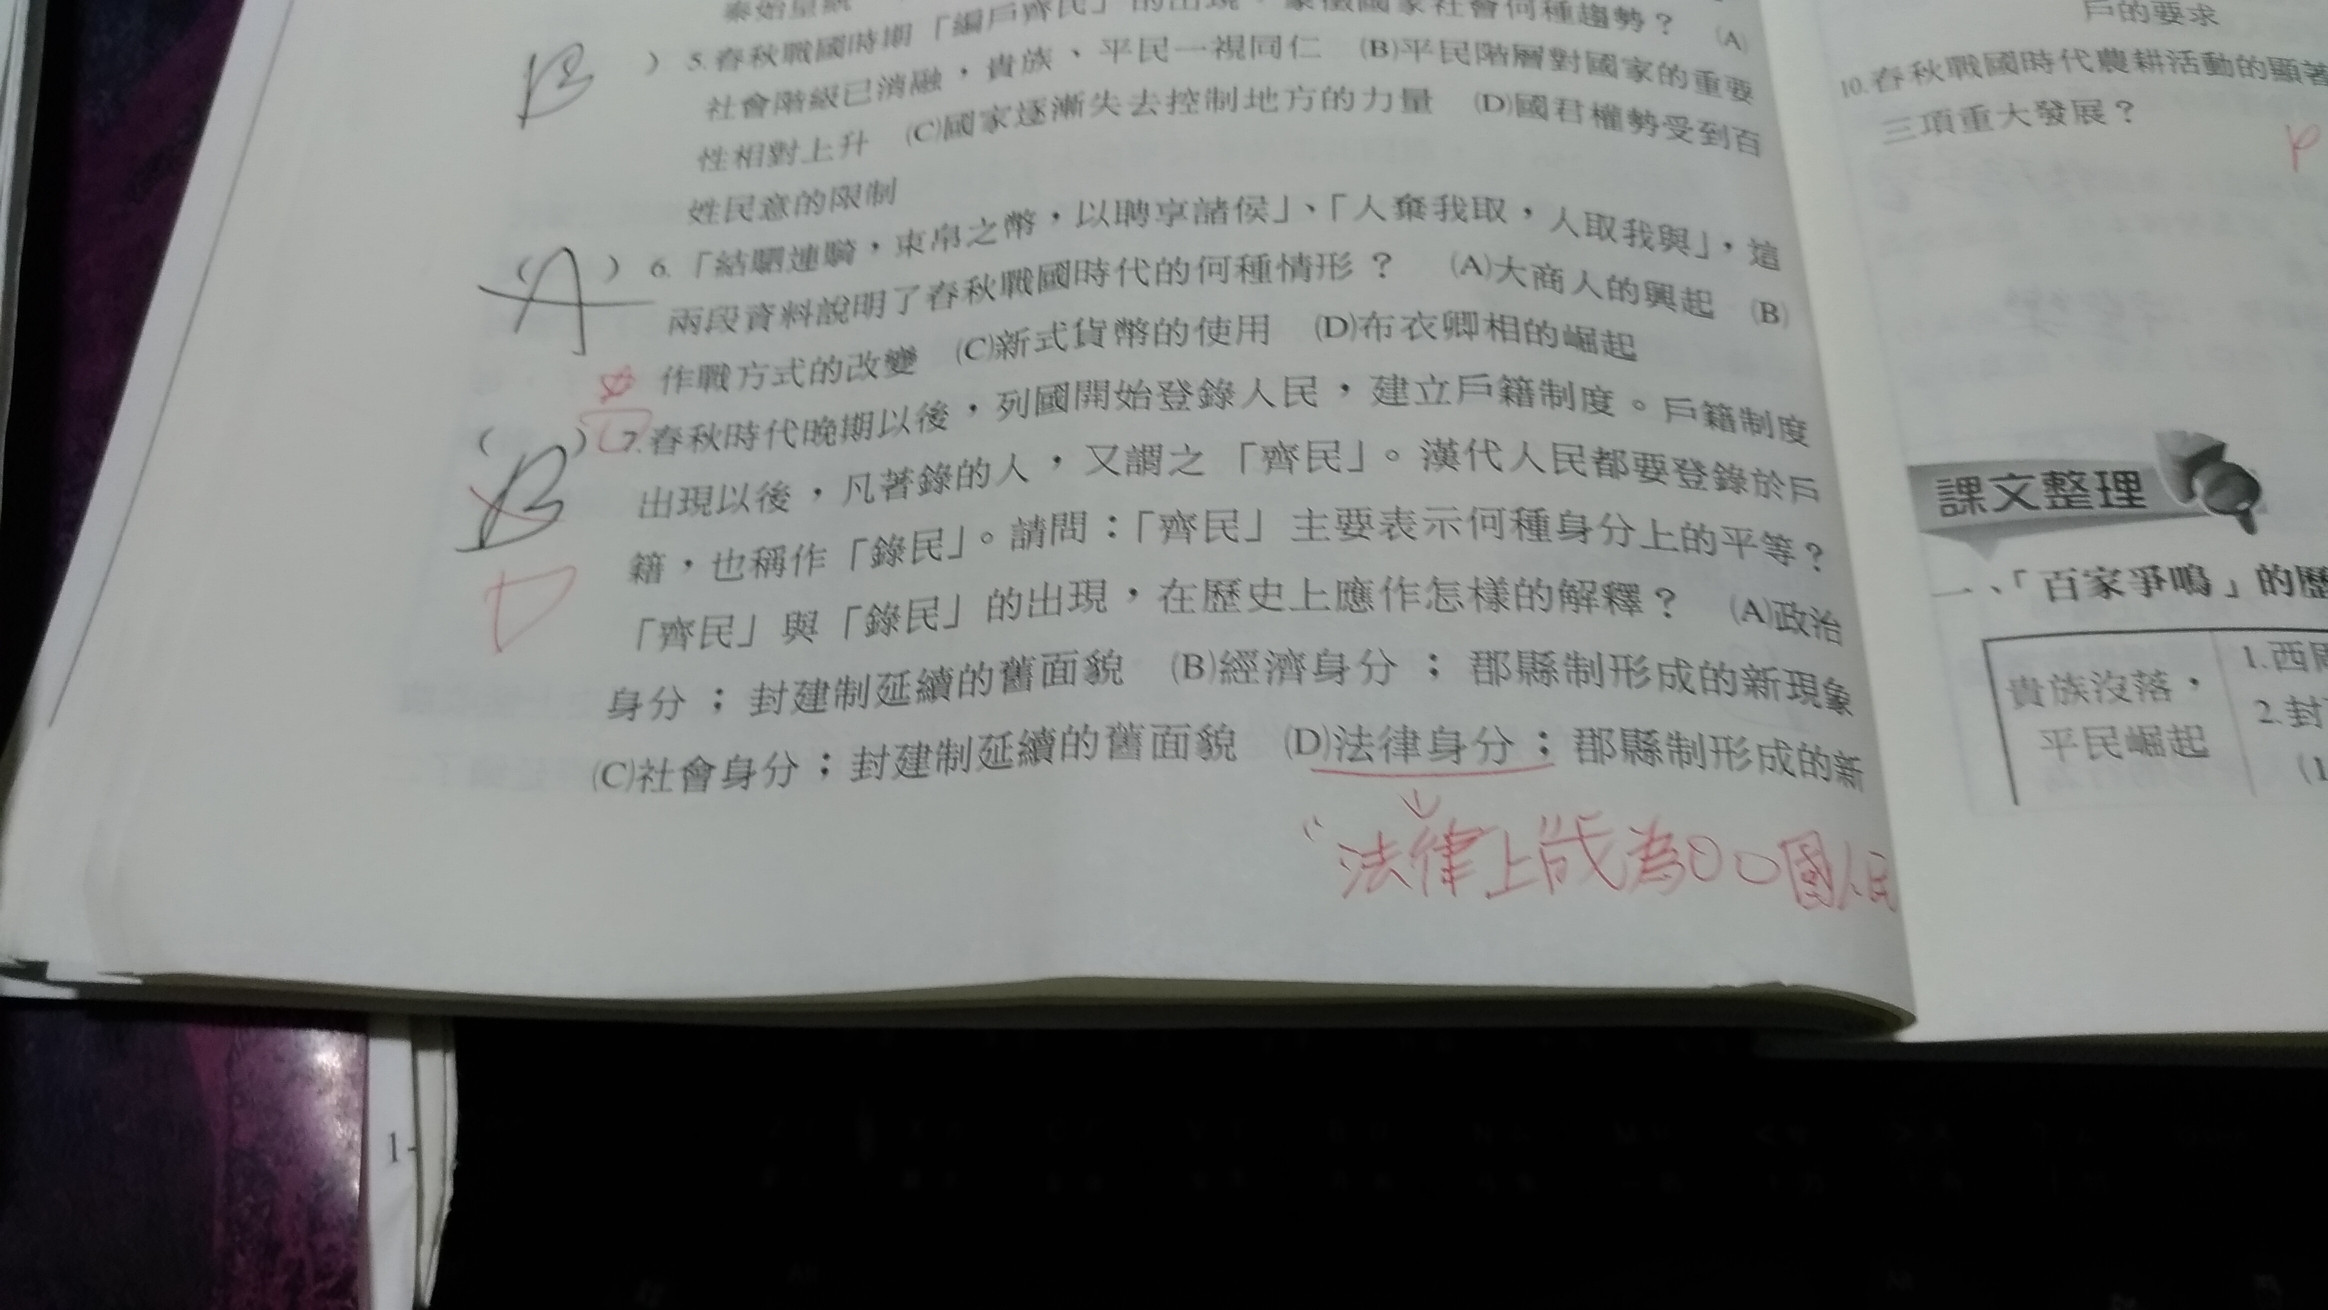 B
)5.春秋戰國時期「編戶齊民」的出現,象徵國家社會何種趨勢? (A)
社會階級已消融,貴族、平民一視同仁 (B)平民階層對國家的重要
性相對上升 (C)國家逐漸失去控制地方的力量 (D)國君權勢受到百
姓民意的限制
(A)6.「結駟連騎,束帛之幣,以聘享諸侯」、「人棄我取,人取我與」,這
兩段資料說明了春秋戰國時代的何種情形? (A)大商人的興起 (B)
作戰方式的改變 (C)新式貨幣的使用 (D)布衣卿相的崛起
( )7.春秋時代晚期以後,列國開始登錄人民,建立戶籍制度。戶籍制度
B
出現以後,凡著錄的人,又謂之「齊民」。漢代人民都要登錄於戶
籍,也稱作「錄民」。請問:「齊民」主要表示何種身分上的平等?
D
「齊民」與「錄民」的出現,在歷史上應作怎樣的解釋? (A)政治
身分;封建制延續的舊面貌 (B)經濟身分;郡縣制形成的新現象
(C)社會身分;封建制延續的舊面貌 (D)法律身分;郡縣制形成的新
法律上成為〇〇國人民
戶的要求
10.春秋戰國時代農耕活動的顯著
三項重大發展?
課文整理
一、「百家爭鳴」的歷
貴族沒落,
平民崛起
1.西周
2.封
(1
1-